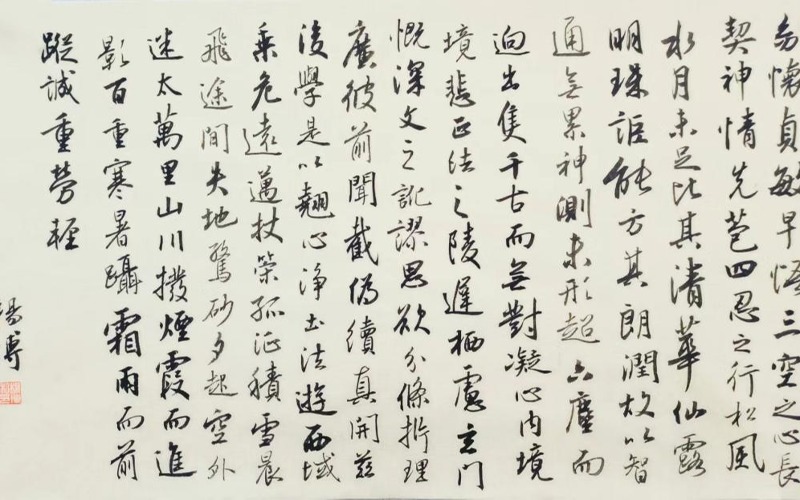 幼懷貞敏早悟三空之心長
契神情先苞四忍之行松風
水月未足比其清華仙露
明珠詎能方其朗潤故以智
通無累神測未形超六塵而
迥出隻千古而無對凝心内境
境悲正法之陵遲栖慮玄門
慨深文之訛謬思欲分條析理
廣彼前聞截偽續真開茲
後學是以翹心淨土法遊西域
乘危遠邁杖策孤征積雪晨
飛途間失地驚砂夕起空外
迷太萬里山川撥煙霞而進
影百重寒暑躡霜雨而前
蹤誠重勞輕